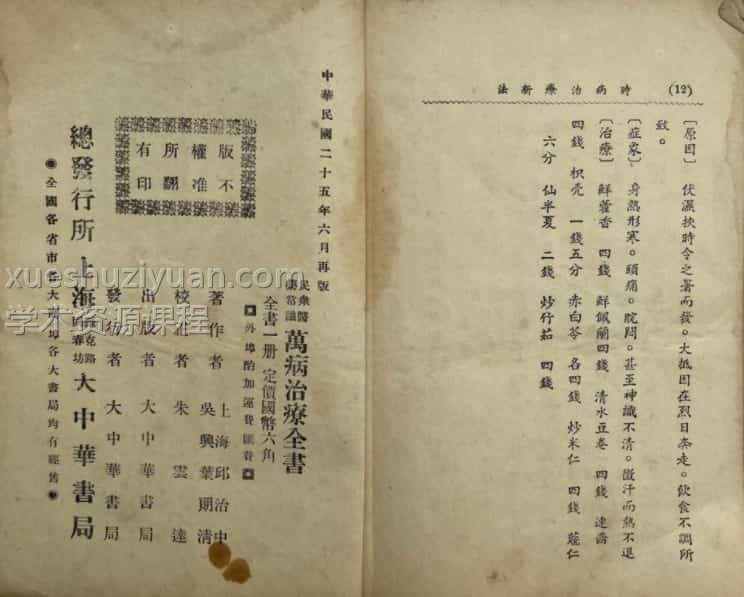 (12) 時病治療新法
〔原因〕 伏濕挾時令之暑而發。大抵因在烈日奔走。飲食不調所
致。
〔症象〕 身熱形寒。頭痛。脘悶。甚至神識不清。微汗而熱不退
〔治療〕 鮮藿香 四錢 鮮佩蘭四錢 清水豆卷 四錢 連喬
四錢 枳壳 一錢五分 赤白苓 各四錢 炒米仁 四錢 蔻仁
六分 仙半夏 二錢 炒竹茹 四錢
中華民國二十五年六月再版
民眾醫藥常識 萬病治療全書
全書一册 定價國幣六角
外埠酌加運費匯費
版權所有
不准翻印
著作者 上海邱治中 吳興葉朗清
校正者 朱雲達
出版者 大中華書局
發行者 大中華書局
總發行所 上海 大中華書局
全國各省市各大商埠各大書局均有經售
xueshuziyuan.com
学术资源课程